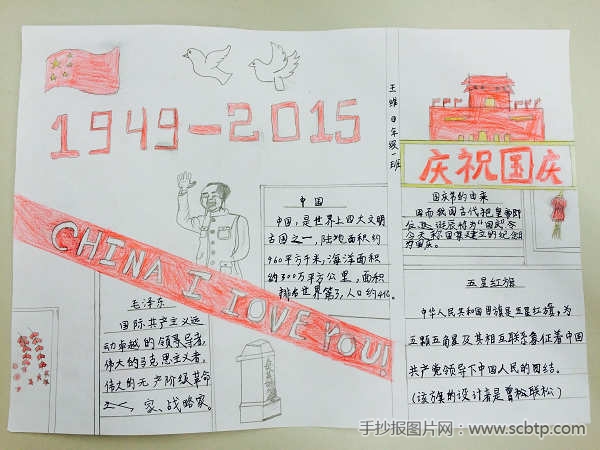 1949-2015
王
年级一班
庆祝国庆
CHINA I LOVE YOU!
中国
中国,是世界上四大文明
古国之一,陆地面积约
960平方千米,海洋面积
约300万平方公里,面积
排名世界第3,人口约
国庆节的由来
因而我国古代把皇帝即
位、诞辰称为“国庆”今
天称国家建立的纪念
为国庆。
毛泽东
国际共产主义运
动卓越的领导者,
伟大的马克思主义者,
伟大的无产阶级革命
家、战略家。
五星红旗
中华人民共和国国旗是五星红旗,为
五颗五角星及其相互联系象征着中国
共产党领导下中国人民的团结。
(该方案的设计者是曾松联松)
手抄报图片网:www.scbtp.com